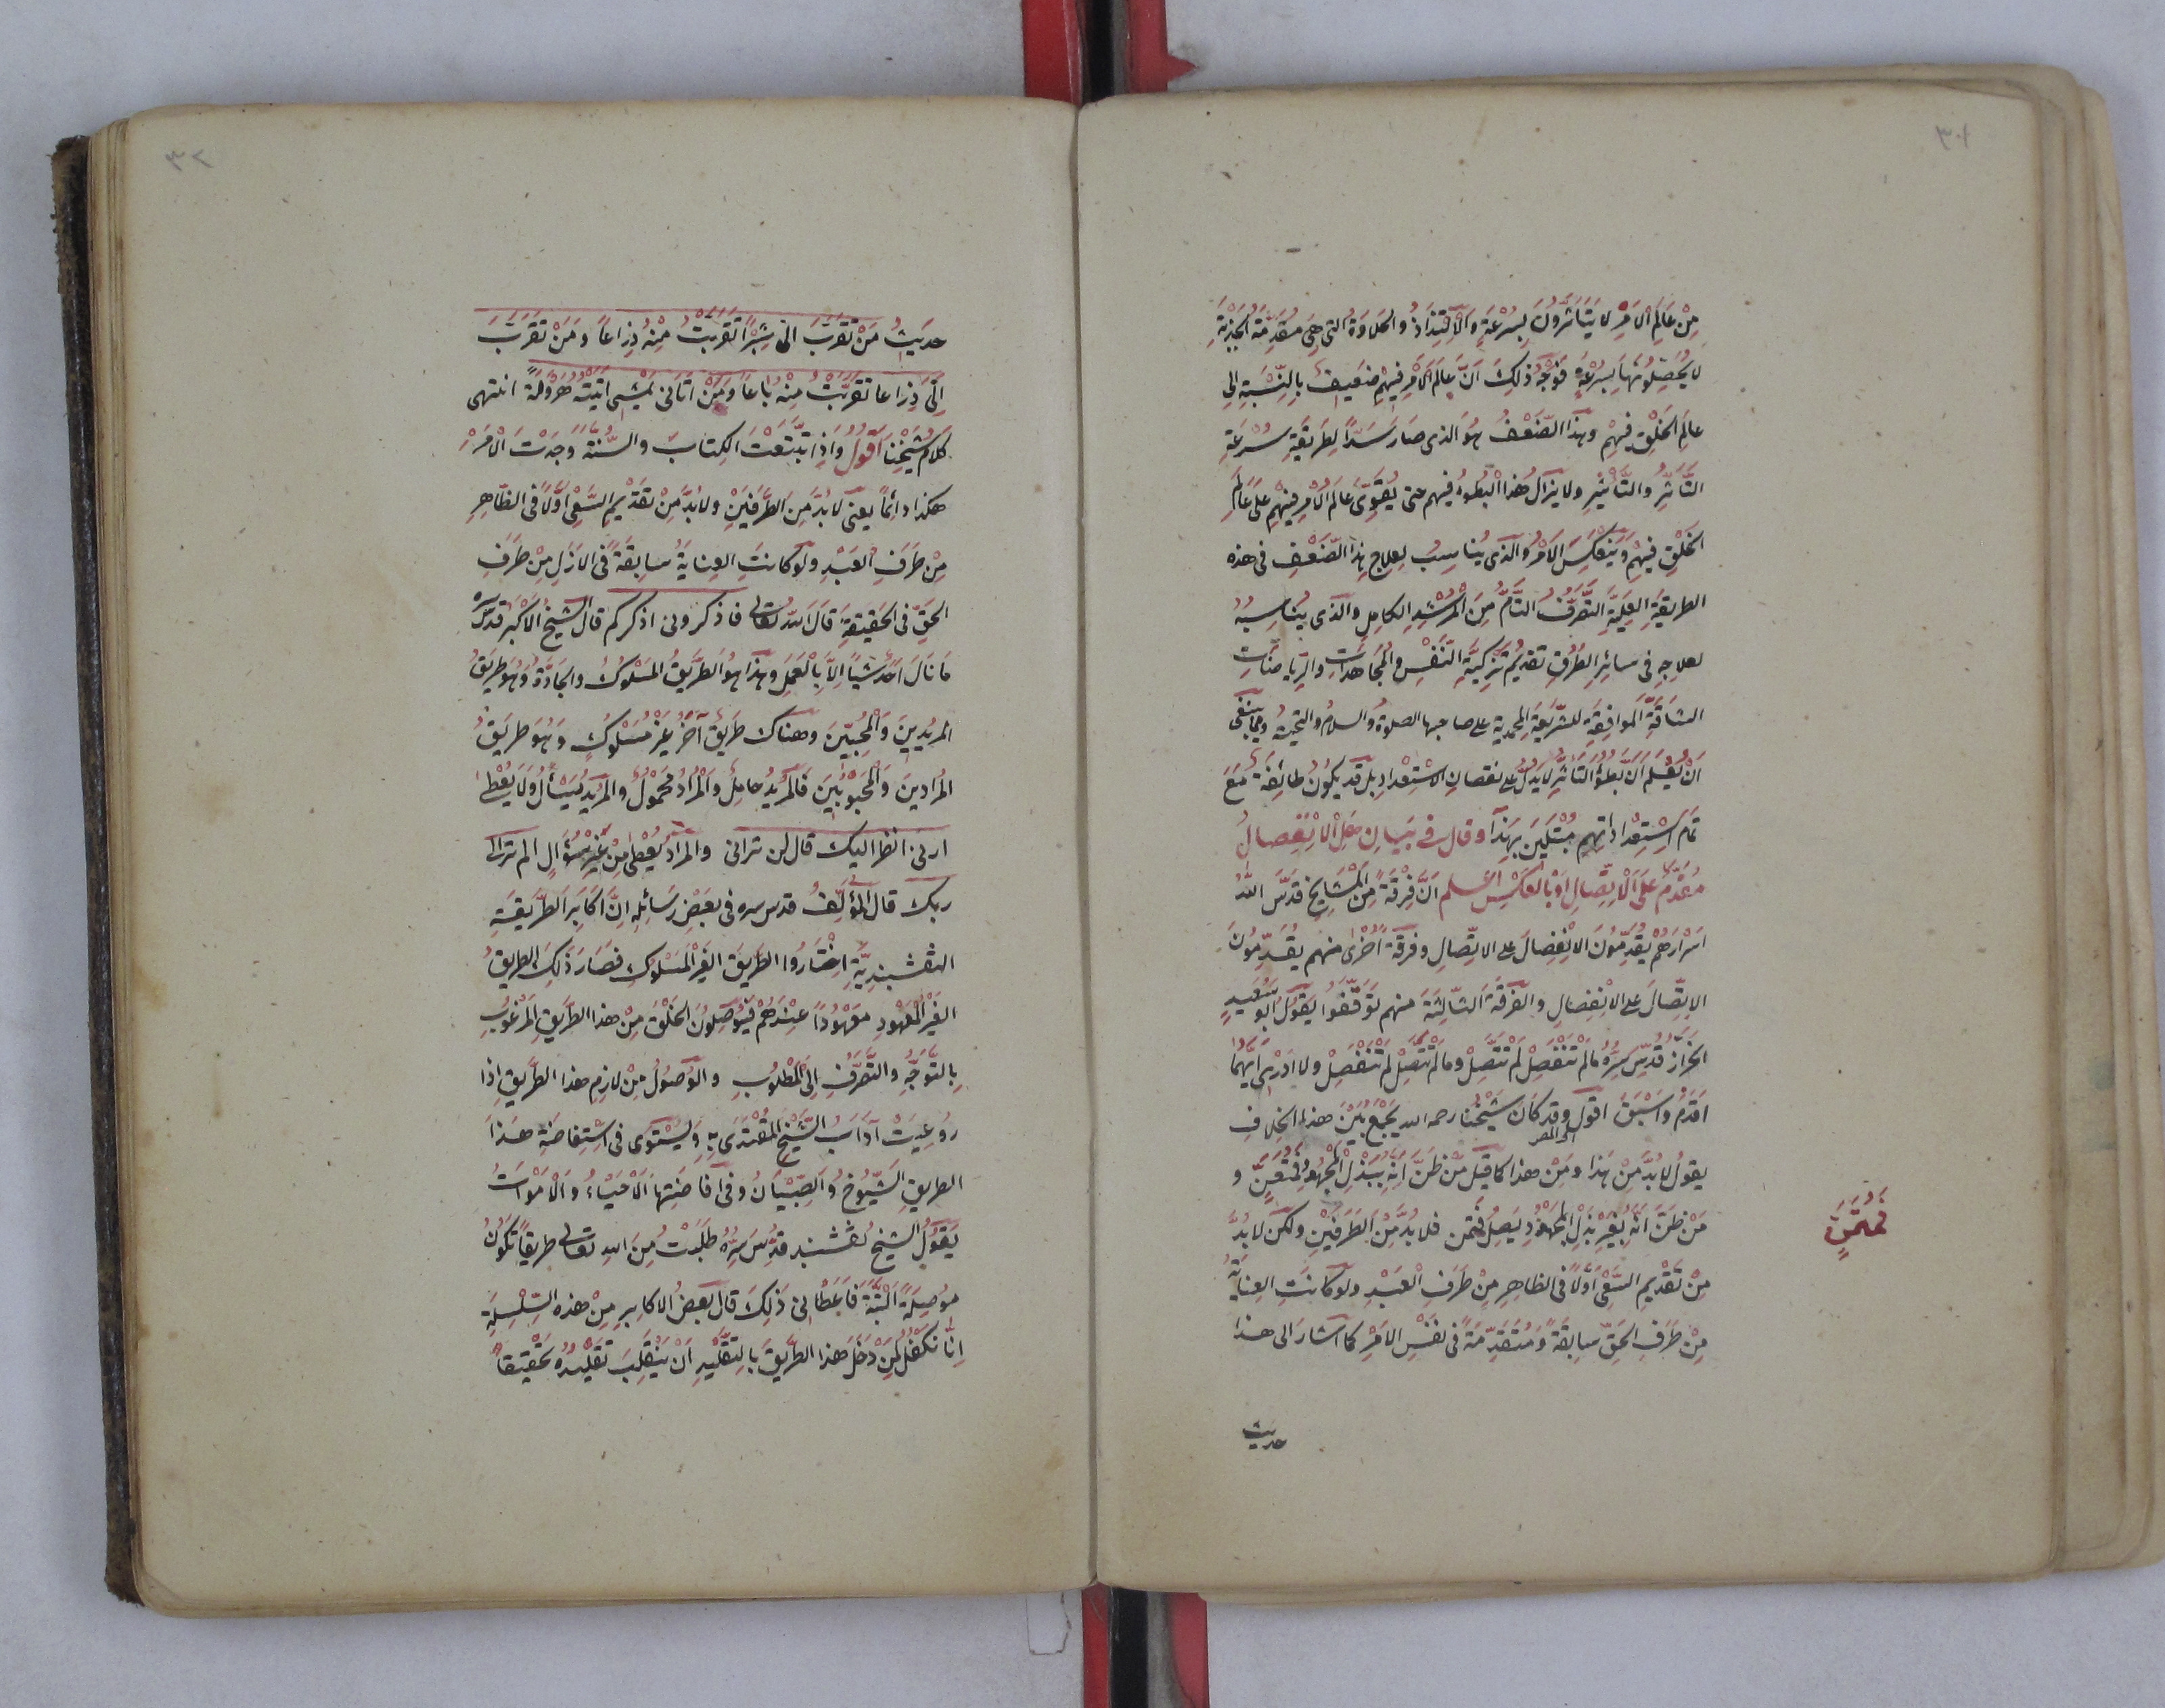 ٣١
مِنْ عَالَمِ الْاَمْرِ لَا يَتَأَثَّرُونَ بِسُرْعَةٍ وَالْاِلْتِذَاذُ وَالْحَلَاوَةُ الَّتِي هِيَ مُقَدِّمَةُ الْجَذْبَةِ
لَا يُحَصِّلُونَهَا بِسُرْعَةٍ فَوَجْهُ ذٰلِكَ اَنَّ عَالَمَ الْاَمْرِ فِيهِمْ ضَعِيفٌ بِالنِّسْبَةِ اِلٰى
عَالَمِ الْخَلْقِ فِيهِمْ وهذا الضَّعْفُ هُوَ الذى صَارَ سَدًّا لِطَرِيقَةِ سُرْعَةِ
التَّأَثُّرِ والتَّأْثِيرِ ولا يزال هٰذا الْبُطُوءُ فيهم حتى يُقَوِّىَ عَالَمُ الْاَمْرِ فِيهِمْ عَلَى عَالَمِ
الْخَلْقِ فِيهِمْ وَيَنْعَكِسَ الْاَمْرُ والَّذى يُنَاسِبُ لِعِلَاجِ هذا الضَّعْفِ فى هذه
الطريقةِ الْعَلِيَّةِ التَّصَرُّفُ التَّامُّ مِنَ الْمُرْشِدِ الكامِلِ والَّذى يُنَاسِبُهُ
لعلاجِهِ فى سائِرِ الطُّرُقِ تقديمُ تَزْكِيَةِ النَّفْسِ والْمُجَاهَدَاتِ والرِّيَاضَاتِ
الشَاقَّةِ الْمُوَافِقَةِ للشَّرِيعَةِ المحمدية على صاحبها الصلوةُ والسلامُ والتحيةُ ومما ينبغى
اَنْ يُعْلَمَ اَنَّ بُطُؤَ التَّأَثُّرِ لا يَدُلُّ على نقصانِ الاسْتِعْدَادِ بل قد يكونُ طائِفَةٌ مَعَ
تَمَامِ اسْتِعْدَادَاتِهِمْ مُبْتَلِينَ بِهٰذَا وقال فى بَيَانِ هَلِ الْاِنْفِصَالُ
مُقَدَّمٌ عَلَى الْاِتِّصَالِ اَوْ بِالْعَكْسِ اعلم اَنَّ فِرْقَةً مِنَ الْمَشَايِخِ قَدَّسَ اللّٰهُ
اَسْرَارَهُمْ يُقَدِّمُونَ الْاِنْفِصَالَ على الاتّصالِ وفرقةً اُخْرٰى منهم يُقَدِّمُونَ
الاتِّصَالَ على الانْفِصَالِ والْفِرْقَةَ الثَّالِثَةَ منهم تَوَقَّفُوا يَقُولُ اَبُو سَعِيدٍ
الخَرَّازُ قُدِّسَ سِرُّهُ مَا لَمْ تَنْفَصِلْ لَمْ تَتَّصِلْ وما لَمْ تَتَّصِلْ لَمْ تَنْفَصِلْ ولا اَدْرِى اَيُّهُمَا
اَقْدَمُ واَسْبَقُ اقول وقد كَانَ شَيْخُنَا رحمه الله يَجْمَعُ بَيْنَ هذا الْخِلَافِ
يقولُ لابُدَّ مِنْ هٰذا ومِنْ هذا كما قيل مَنْ ظَنَّ اَنَّهُ بِبَذْلِ الْمَجْهُودِ فَمُتَعَنٍّ و
مَنْ ظَنَّ اَنَّهُ بِغَيْرِ بَذْلِ الْمَجْهُودِ يَصِلُ فمتمن فلا بُدَّ مِنَ الطَّرَفَيْنِ ولكن لا بُدَّ
فَمُتَمَنٍّ
مِنْ تَقْدِيمِ السَّعْىِ اَوَّلًا فى الظاهِرِ مِنْ طَرَفِ الْعَبْدِ ولو كَانَتِ العِنَايَةُ
مِنْ طَرَفِ الْحَقِّ سابِقَةً ومُتَقَدِّمَةً فى نَفْسِ الْاَمْرِ كما اَشارَ الى هذا
حديث
٣٢
حديثُ مَنْ تَقَرَّبَ اِلَىَّ شِبْرًا تَقَرَّبْتُ مِنْهُ ذِرَاعًا وَمَنْ تَقَرَّبَ
اِلَىَّ ذِرَاعًا تَقَرَّبْتُ مِنْهُ بَاعًا وَمَنْ اَتَانِى يَمْشِى اَتَيْتُهُ هَرْوَلَةً انتهى
كلامُ شَيْخِنَا اَقُولُ وَاِذَا تَتَبَّعْتَ الكتابَ والسُّنَّةَ وَجَدْتَ الْاَمْرَ
هكذا دائِمًا يعنى لابُدَّ مِنَ الطَّرَفَيْنِ ولابُدَّ مِنْ تَقْدِيمِ السَّعْىِ اَوَّلًا فى الظاهِرِ
مِنْ طَرَفِ الْعَبْدِ ولو كانَتِ العِنايَةُ سابِقَةً فى الْاَزَلِ مِنْ طَرَفِ
الحَقِّ فى الحَقِيقَةِ قَالَ اللّٰهُ تعالى فاذكرونى اذكركم قال الشيخُ الْاَكْبَرُ قدس سره
مَا نَالَ اَحَدٌ شَيْئًا اِلَّا بِالْعَمَلِ وهذا هُوَ الطَّرِيقُ المَسْلُوكُ والجَادَّةُ وهو طَرِيقُ
المُرِيدِينَ والْمُحِبِّينَ وهناك طَرِيقٌ آخَرُ غَيْرُ مَسْلُوكٍ وهُوَ طَرِيقُ
المُرَادِينَ وَالْمَحْبُوبِينَ فَالْمُرِيدُ حامِلٌ والْمُرَادُ مَحْمُولٌ والْمُرِيدُ يَسْأَلُ وَلَا يُعْطٰى
ارنى انظر اليك قال لن ترانى والمرادُ يُعْطٰى مِنْ غَيْرِ سُؤَالٍ الم تر الى
ربك قال الْمُؤَلِّفُ قدس سره فى بعضِ رَسَائِلِهِ اِنَّ اَكَابِرَ الطَّرِيقَةِ
النقشبنديَّةِ اخْتَارُوا الطَّرِيقَ الغَيْرَ الْمَسْلُوكِ فصَارَ ذٰلِكَ الطريقُ
الغَيْرُ الْمَعْهُودِ مَعْهُودًا عِنْدَهُمْ فَيُوصِلُونَ الخَلْقَ مِنْ هذا الطَّرِيقِ الْمَرْغُوبِ
بِالتَّوَجُّهِ والتَّصَرُّفِ اِلَى الْمَطْلُوبِ والوُصُولُ مِنْ لازِمِ هذا الطَّرِيقِ اِذَا
رُوعِيَتْ آدَابُ الشَّيْخِ الْمُقْتَدٰى بِهِ وَيَسْتَوِى فى اسْتِفَاضَةِ هٰذَا
الطريقِ الشُّيُوخُ والصِّبْيَانُ وفى اِفَاضَتِهَا الْاَحْيَاءُ والْاَمْوَاتُ
يَقُولُ الشَّيخُ نقشبند قُدِّسَ سِرُّهُ طَلَبْتُ مِنَ اللّٰهِ تعالى طَرِيقًا تَكُونُ
مُوصِلَةً اَلْبَتَّةَ فَاَعْطَانِى ذٰلِكَ قالَ بَعْضُ الاكابِرِ مِنْ هذه السِّلْسِلَةِ
اِنَّا نَكْفُلُ لِمَنْ دَخَلَ هٰذا الطَّرِيقَ بِالتَّقْلِيدِ اَنْ يَنْقَلِبَ تَقْلِيدُهُ تَحْقِيقًا